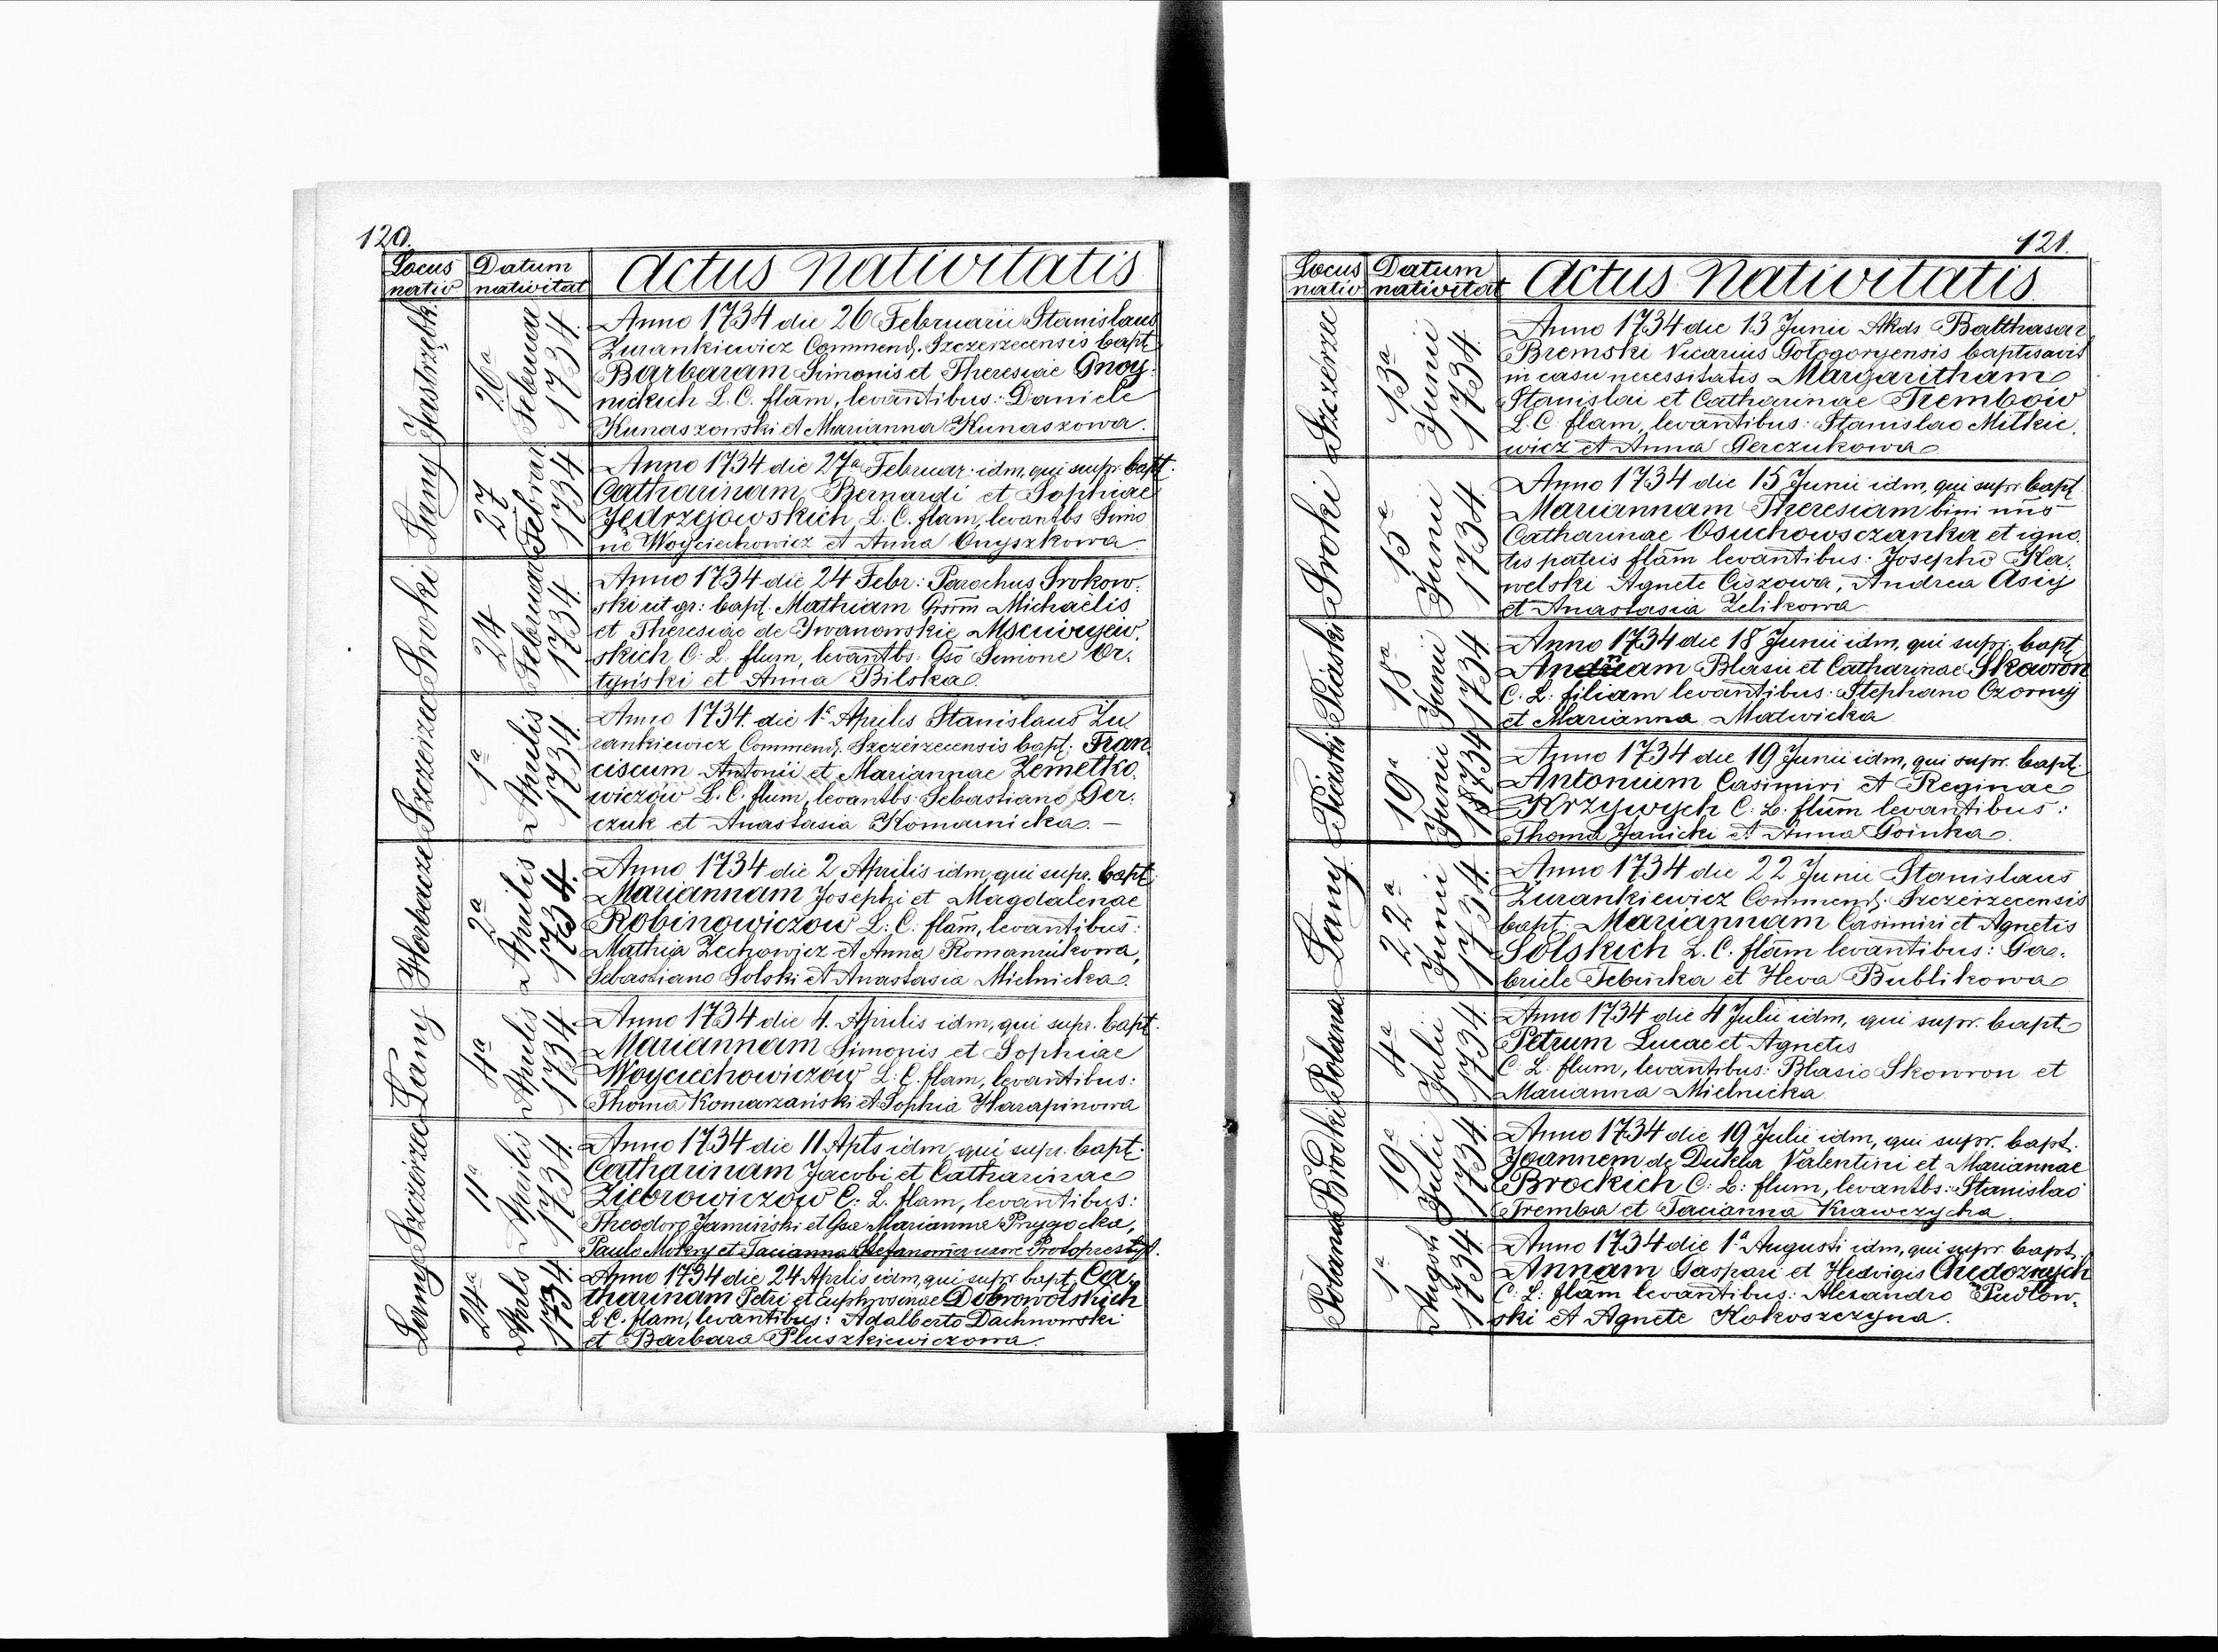 120.
Locus nativ
Datum nativitat
Actus Nativitatis
Jastrzębki
26a Februar 1734.
Anno 1734 die 26 Februarii Stanislaus
Zurankiewicz Commend. Szczerzecensis bapt
Barbaram Simonis et Theresiae Gnoy-
nickich L. C. flam, levantibus: Daniele
Kunaszowski et Marianna Kunaszowa.
Łany
27 Februar 1734
Anno 1734 die 27a Februar: idm, qui supr. bapt.
Catharinam Bernardi et Sophiae
Jędrzejowskich L. C. flam, levantbs Simo
ne Woyciechowicz et Anna Onyszkowa
Sroki
24 Februar 1734.
Anno 1734 die 24 Febr: Parochus Srokow-
ski rit gr: bapt. Mathiam Gsrm Michaelis
et Theresiae de Iwanowskie
skich C. L. flum, levantbs: Gso Simone Or-
tyński et Anna Bilska.
Szczerzec
1a Aprilis 1734.
Anno 1734. die 1a Aprilis Stanislaus Zu
rankiewicz Commend. Szczerzecensis bapt: Fran
ciscum Antonii et Mariannae Zemetko.
wiczów L. C. flum, levantbs: Sebastiano Ger-
czuk et Anastasia Komarnicka. —
Horbacze
2a Aprilis 1734.
Anno 1734 die 2 Aprilis idm, qui supr. bapt
Mariannam Josephi et Magdalenae
Robinowiczow L. C. flam, levantibus:
Mathia Zechowicz et Anna Romaniukowa,
Sebastiano Solski et Anastasia Mielnicka.
Łany
4a Aprilis 1734.
Anno 1734 die 4. Aprilis idm, qui supr. bapt.
Mariannam Simonis et Sophiae
Woyciechowiczow L. C. flam, levantibus:
Thoma Komarzański et Sophia Harapinowa
Szczerzec
11a Aprilis 1734.
Anno 1734 die 11 Apls idm, qui supr. bapt.
Catharinam Jacobi et Catharinae
Ziebrowiczow C: L. flam, levantibus:
Theodoro Jamiński et Gsa Marianna Prygocka,
Paulo Mokry et Tacianna Stefanowa uxore Protoprestyt.
Łany
24a Aprls 1734.
Anno 1734 die 24 Aprlis idm, qui supr bapt. Ca-
tharinam Petri et Euphrosinae Dobrowolskich
L. C. flam, levantibus: Adalberto Dachnowski
et Barbara Pluszkiewiczowa.
121.
Locus nativ
Datum nativitat
Actus Nativitatis
Szczerzec
13a Junii 1734.
Anno 1734 die 13 Junii Akds Balthasar
Bremski Vicarius Gołogoryensis baptisavit
in casu necessitatis Margaritham
Stanislai et Catharinae Trembow
L. C flam, levantibus: Stanislao Mitkie.
wicz et Anna Gerczukowa
Sroki
15a Junii 1734.
Anno 1734 die 15 Junii idm, qui supr bapt
Mariannam Theresiam bini
Catharinae Osuchowsczanka et igno.
tis patris flam levantibus: Josepho Ka.
welski Agnete Ciszowa, Andrea Asiy
et Anastasia Zelikowa
Piaski
18a Junii 1734.
Anno 1734 die 18 Junii idm, qui supr. bapt
Blasii et Catharinae Skowron
C. L: filiam levantibus: Stephano Czorny
et Marianna Matwicka
Piaski
19a Junii 1734
Anno 1734 die 19 Junii idm, qui supr. bapt.
Antonium Casimiri et Reginae
Krzywych C: L: flum levantibus:
Thoma Janicki et Anna Goinka.
Łany
22a Junii 1734.
Anno 1734 die 22 Junii Stanislaus
Zurankiewicz Commend. Szczerzecensis
bapt. Mariannam Casimiri et Agnetis
Solskich L. C. flam levantibus: Ga-
briele Teburka et Heva Bublikowa
Polana
4a Julii 1734.
Anno 1734 die 4 Julii idm, qui supr. bapt.
Petrum Lucae et Agnetis
C. L: flum, levantibus: Blasio Skowron et
Marianna Mielnicka
Brodki
19a Julii 1734
Anno 1734 die 19 Julii idm, qui supr. bapt.
Joannem de Dukla Valentini et Mariannae
Brockich C: L: flum, levantbs: Stanislao
Tremba et Tacianna Krawczycha.
Polana
1a Augsti 1734.
Anno 1734 die 1a Augusti idm, qui supr bapt.
Annam Gaspari et Hedvigis Chudoznych
C: L: flam levantibus: Alexandro Pudłow-
ski et Agnete Kokoszczyna.